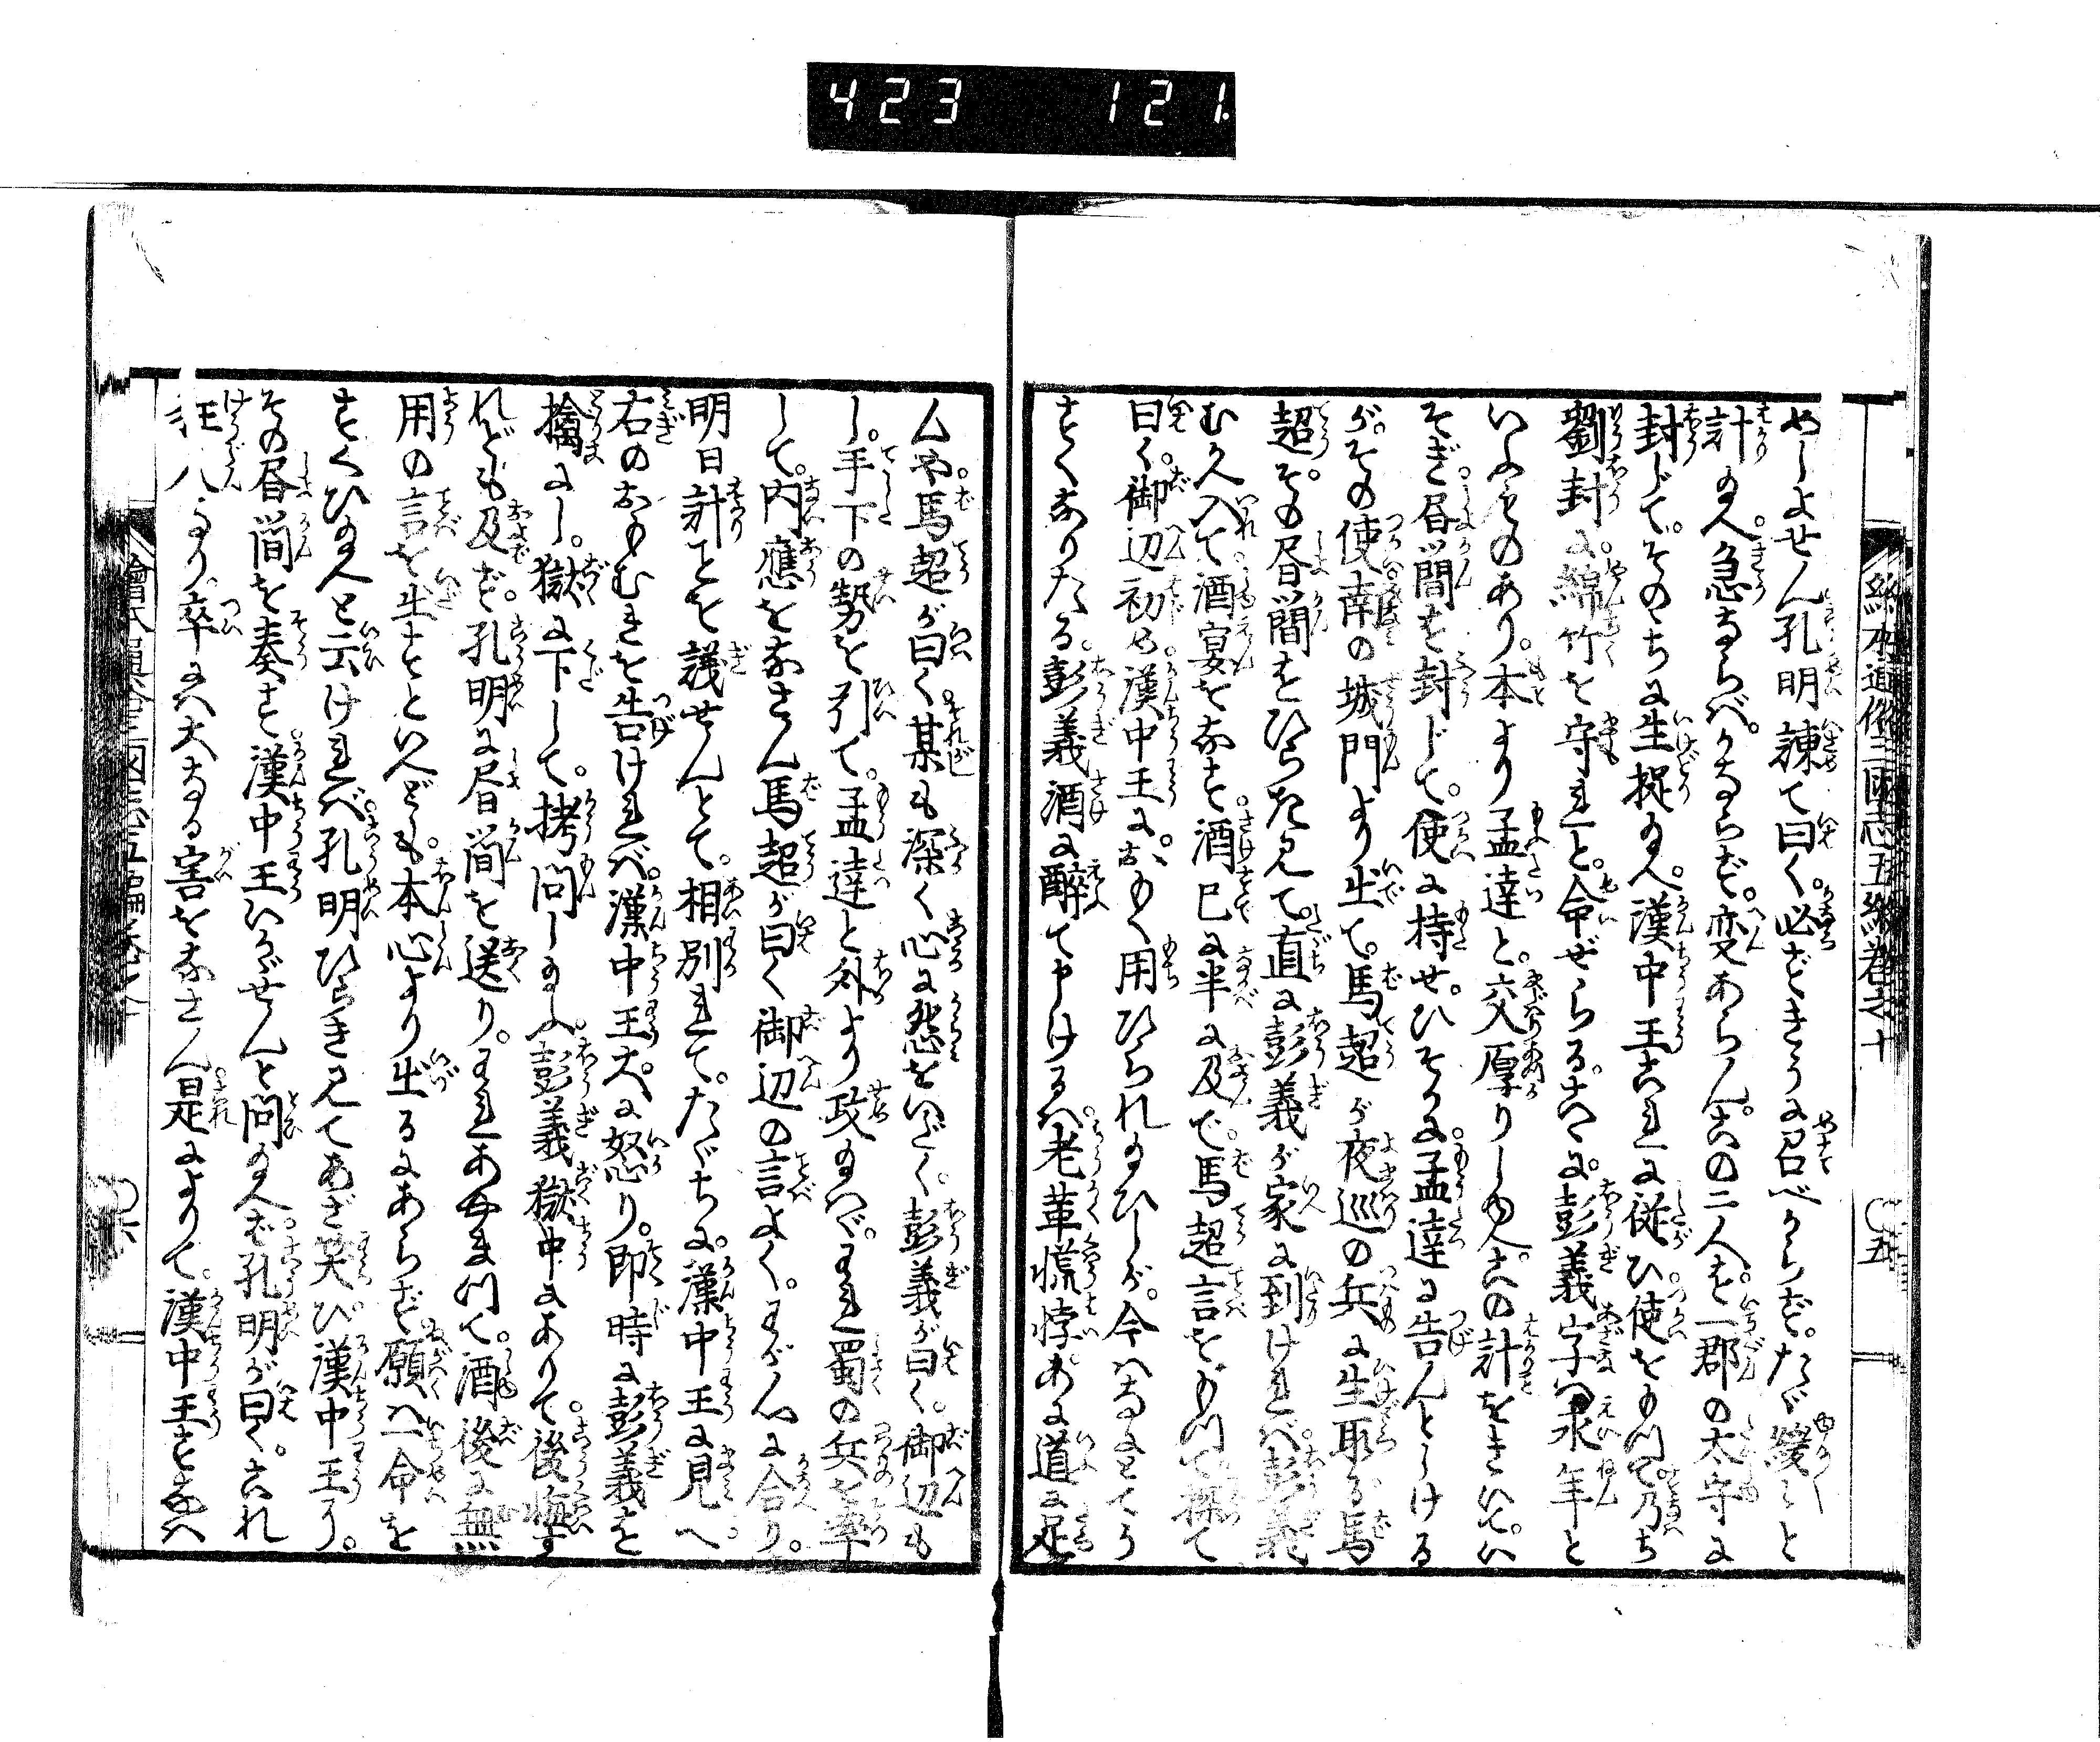 423 121.
絵本通俗三國志五編巻之十 〇五
めしよせん孔明諫て曰く必ずきうに召べからず。たゞ緩々と
計り給へ。急ならば。かならず変あらん。此の二人を一郡の太守に
封じて。そのちに生捉給へ。漢中王これに従ひ使をつて。乃ち
劉封に。綿竹を守れと。命ぜらるこゝに。彭義字は永年と
いふものあり。本より孟達と。交厚りしゆへ。此の計をきいて。い
そぎ。書簡を封じて。使に持せ。ひそかに孟達に告んとしける
が。その使南の城門より出て。馬超が夜巡の兵に生取る馬
超。その書簡をひらき見て。直に彭義が家に到ければ彭義
むかへ入て酒宴をなす酒已に半に及で。馬超言をもつて探て
曰く。御辺初め漢中王に。あつく用ひられ給ひしが。今はなにとてう
とくなりたる。彭義酒に醉て申けるは老革慌悖あに道に足
んや。馬超が曰く某も深く心に怨をいだく。彭義が曰く。御辺も
し。手下の勢を引て。孟達と外より攻給はゞ。われ蜀の兵を率
して。内應をなさん馬超が曰く御辺の言よく。わが心に合り。
明日計ことを議せんとて。相別れて。たゞちに。漢中王に見へ
右のおもむきを告ければ。漢中王大に怒り。即時に彭義を
擒にし。獄に下して。拷問し給ふ。彭義獄中にありて後悔す
れども及ず。孔明に書簡を送り。われあやまつて。酒後に無
用の言を出すといへども。本心より出るにあらず願は一命を
すくひ給へと云ければ孔明ひらき見てあざ笑ひ漢中王に。
その書簡を奏す漢中王いかゞせんと問給へば孔明が曰く。これ
狂人なり。卒には大なる害をなさん是によりて。漢中王をとなへ
繪本通俗三國志五編巻之十 〇六